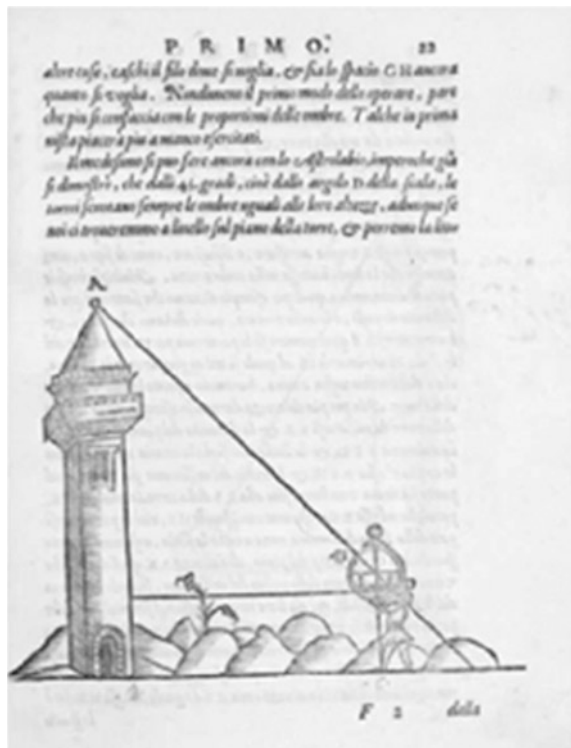 PRIMO. 22
altre cose, caschi il filo doue si voglia, & sia lo spatio C H ancora
quanto si voglia. Nondimeno il primo modo dello operare, pare
che piu si confaccia con le proportioni delle ombre. Talche in prima
vista piacera piu a manco esercitati.
Il medesimo si puo fare ancora con lo Astrolabio, imperoche gia
si dimostrò, che dalli 45. gradi, cioè dallo angolo D della scala, le
torri gettano sempre le ombre uguali alle loro altezze, adunque se
noi ci troueremmo a liuello sul piano della torre, & porremo la linea
A
F 2 della